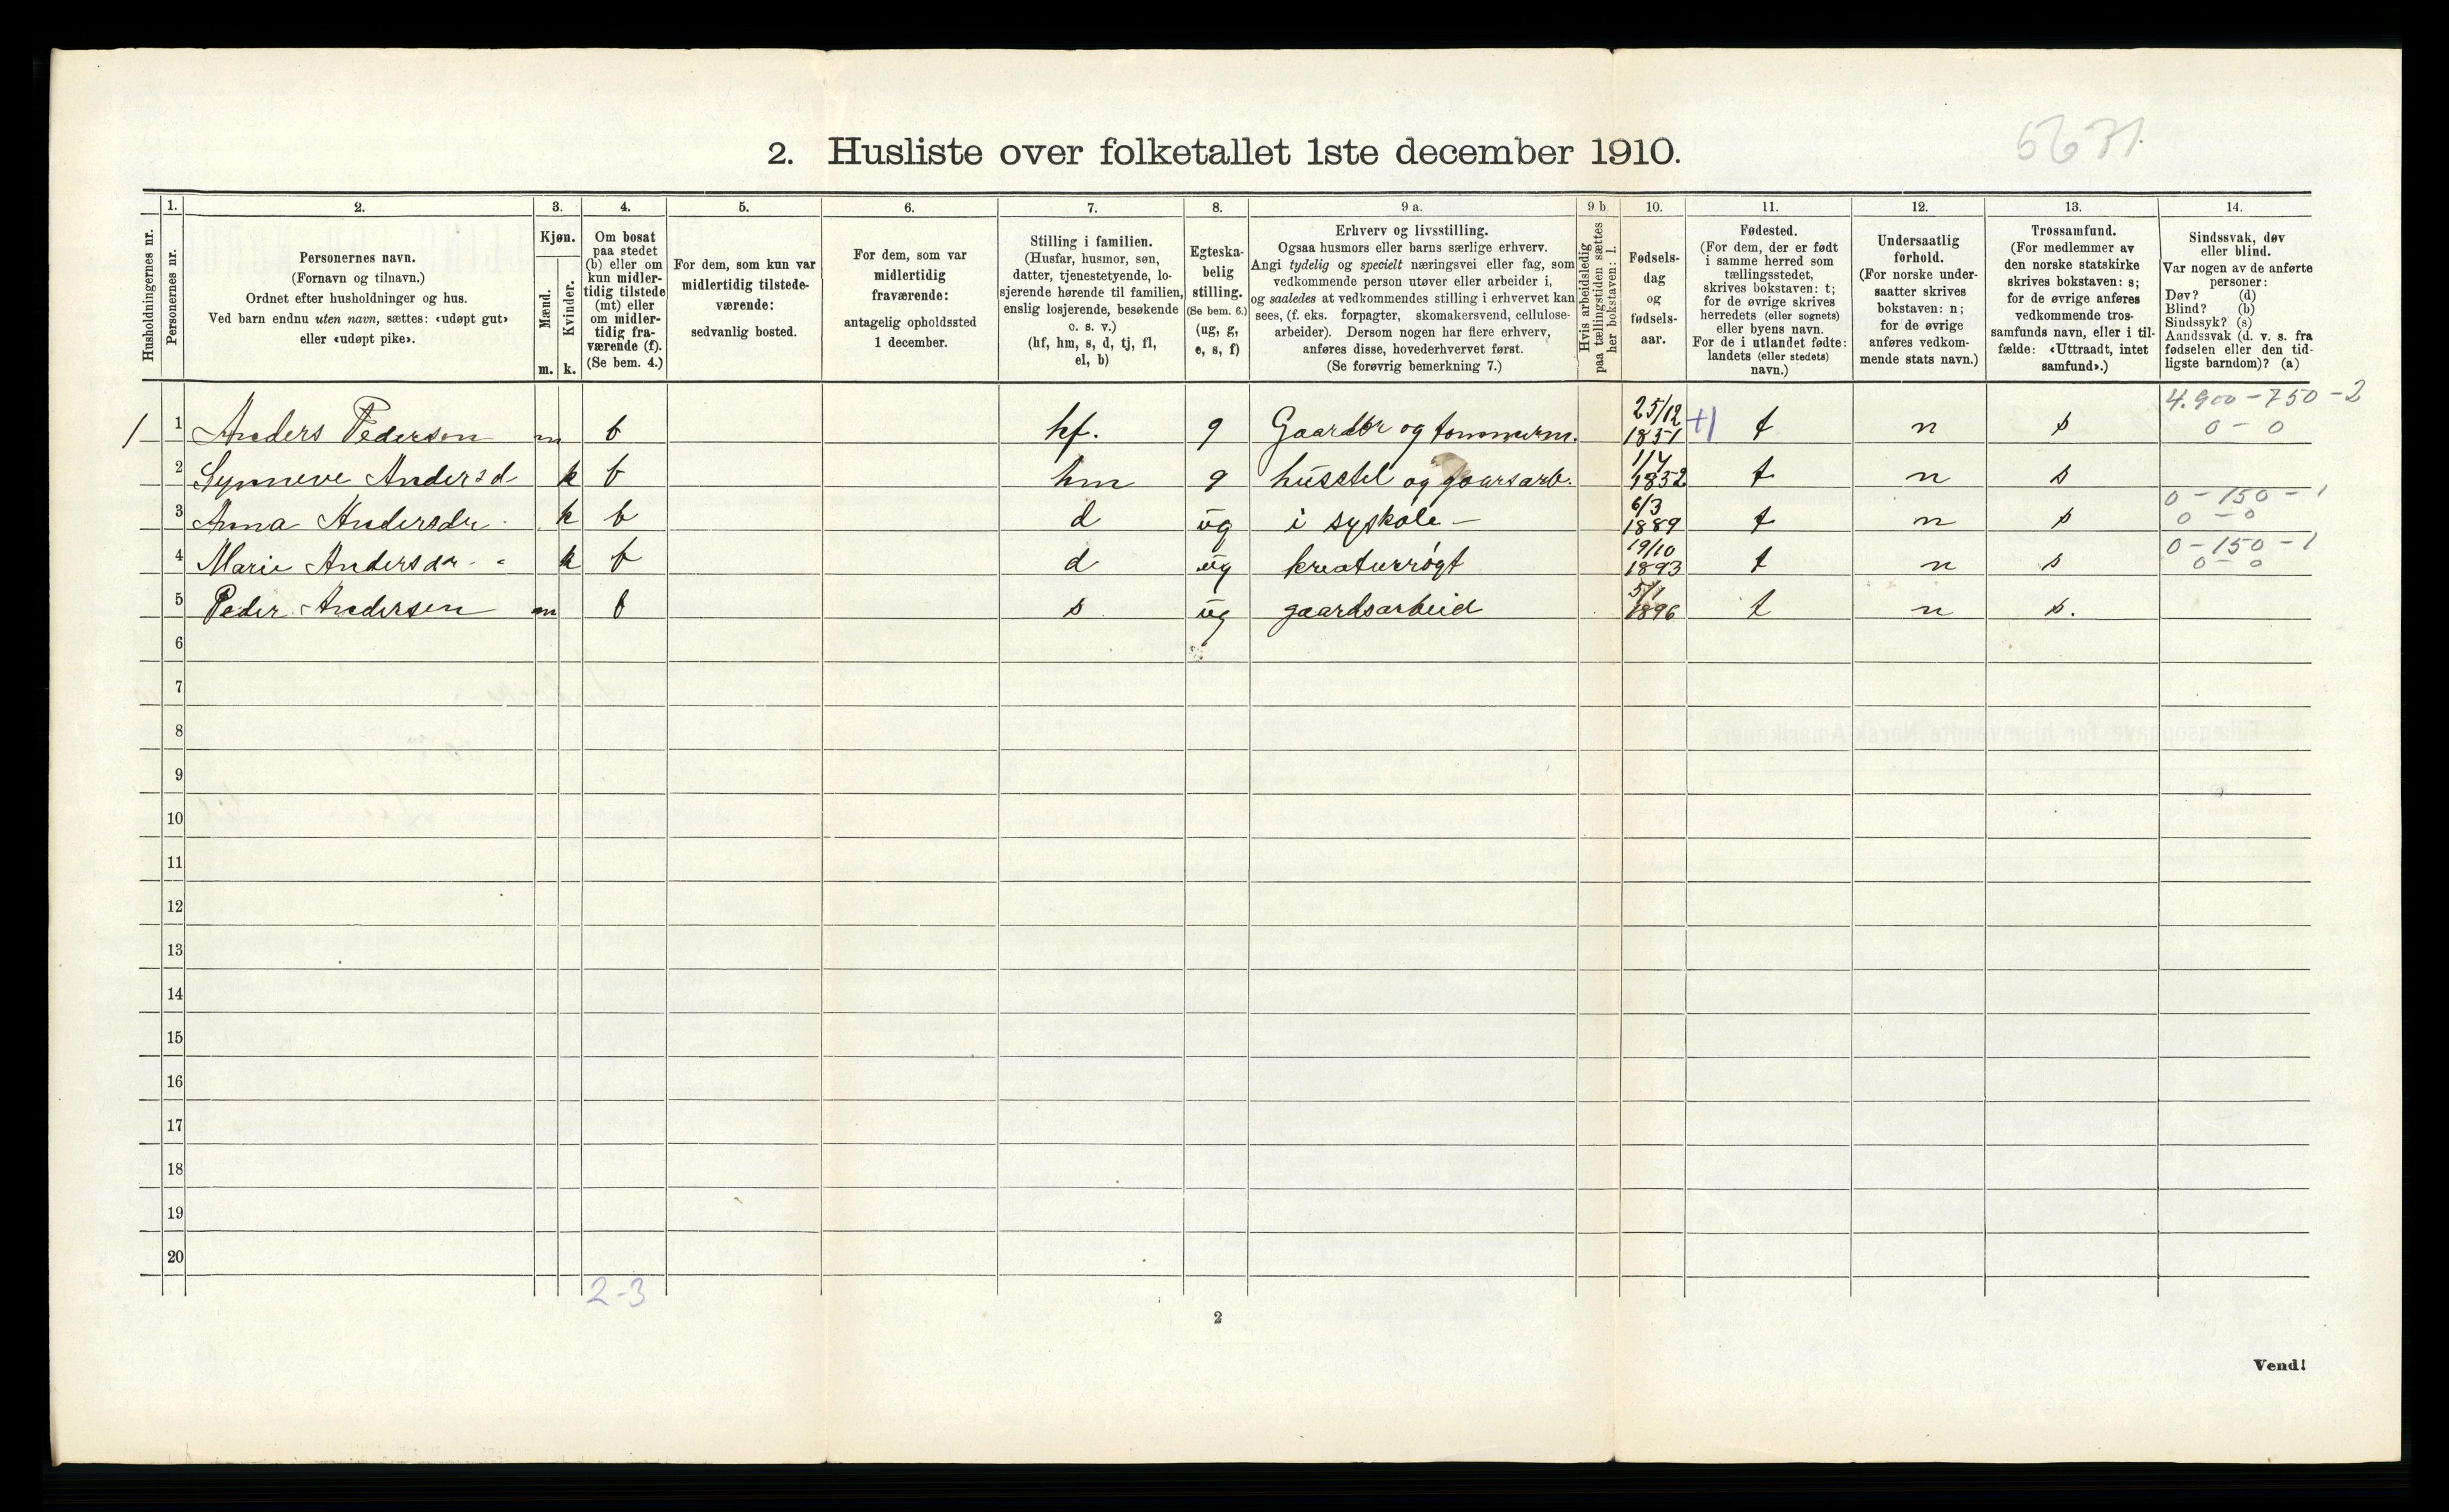 5671.
2. Husliste over folketallet 1ste december 1910.
1. 2. 3. 4. 5. 6. 7. 8. 9 a. 9 b 10. 11. 12. 13. 14.
Husholdningernes nr.
Personernes nr.
Personernes navn.
(Fornavn og tilnavn.)
Ordnet efter husholdninger og hus.
Ved barn endnu uten navn, sættes: «udøpt gut»
eller «udøpt pike».
Kjøn.
Mænd.
Kvinder.
m. k.
Om bosat
paa stedet
(b) eller om
kun midler-
tidig tilstede
(mt) eller
om midler-
tidig fra-
værende (f).
(Se bem. 4.)
For dem, som kun var
midlertidig tilstede-
værende:
sedvanlig bosted.
For dem, som var
midlertidig
fraværende:
antagelig opholdssted
1 december.
Stilling i familien.
(Husfar, husmor, søn,
datter, tjenestetyende, lo-
sjerende hørende til familien,
enslig losjerende, besøkende
o. s. v.)
(hf, hm, s, d, tj, fl,
el, b)
Egteska-
belig
stilling.
(Se bem. 6.)
(ug, g,
e, s, f)
Erhverv og livsstilling.
Ogsaa husmors eller barns særlige erhverv.
Angi tydelig og specielt næringsvei eller fag, som
vedkommende person utøver eller arbeider i,
og saaledes at vedkommendes stilling i erhvervet kan
sees, (f. eks. forpagter, skomakersvend, cellulose-
arbeider). Dersom nogen har flere erhverv,
anføres disse, hovederhvervet først.
(Se forøvrig bemerkning 7.)
Hvis arbeidsledig
paa tællingstiden sættes
her bokstaven: l.
Fødsels-
dag
og
fødsels-
aar.
Fødested.
(For dem, der er født
i samme herred som
tællingsstedet,
skrives bokstaven: t;
for de øvrige skrives
herredets (eller sognets)
eller byens navn.
For de i utlandet fødte:
landets (eller stedets)
navn.)
Undersaatlig
forhold.
(For norske under-
saatter skrives
bokstaven: n;
for de øvrige
anføres vedkom-
mende stats navn.)
Trossamfund.
(For medlemmer av
den norske statskirke
skrives bokstaven: s;
for de øvrige anføres
vedkommende tros-
samfunds navn, eller i til-
fælde: «Uttraadt, intet
samfund».)
Sindssvak, døv
eller blind.
Var nogen av de anførte
personer:
Døv? (d)
Blind? (b)
Sindssyk? (s)
Aandssvak (d. v. s. fra
fødselen eller den tid-
ligste barndom)? (a)
4.900 - 750 - 2
1 1 Anders Pedersen m b hf. g Gaardbr og tømmerm. 25/12 1851 t n s 0 - 0
2 Synneve Andersd k b hm g husstel og gaarsarb. 1/4 1852 t n s
0 - 150 - 1
3 Anna Andersdr. k b d ug i syskole - 6/3 1889 t n s 0 - 0
0 - 150 - 1
4 Marie Andersdr. k b d ug kreaturrøgt 19/10 1893 t n s 0 - 0
5 Peder Andersen m b s ug gaardsarbeid 5/1 1896 t n s.
6
7
8
9
10
11
12
13
14
15
16
17
18
19
20
2-3
2
Vend!